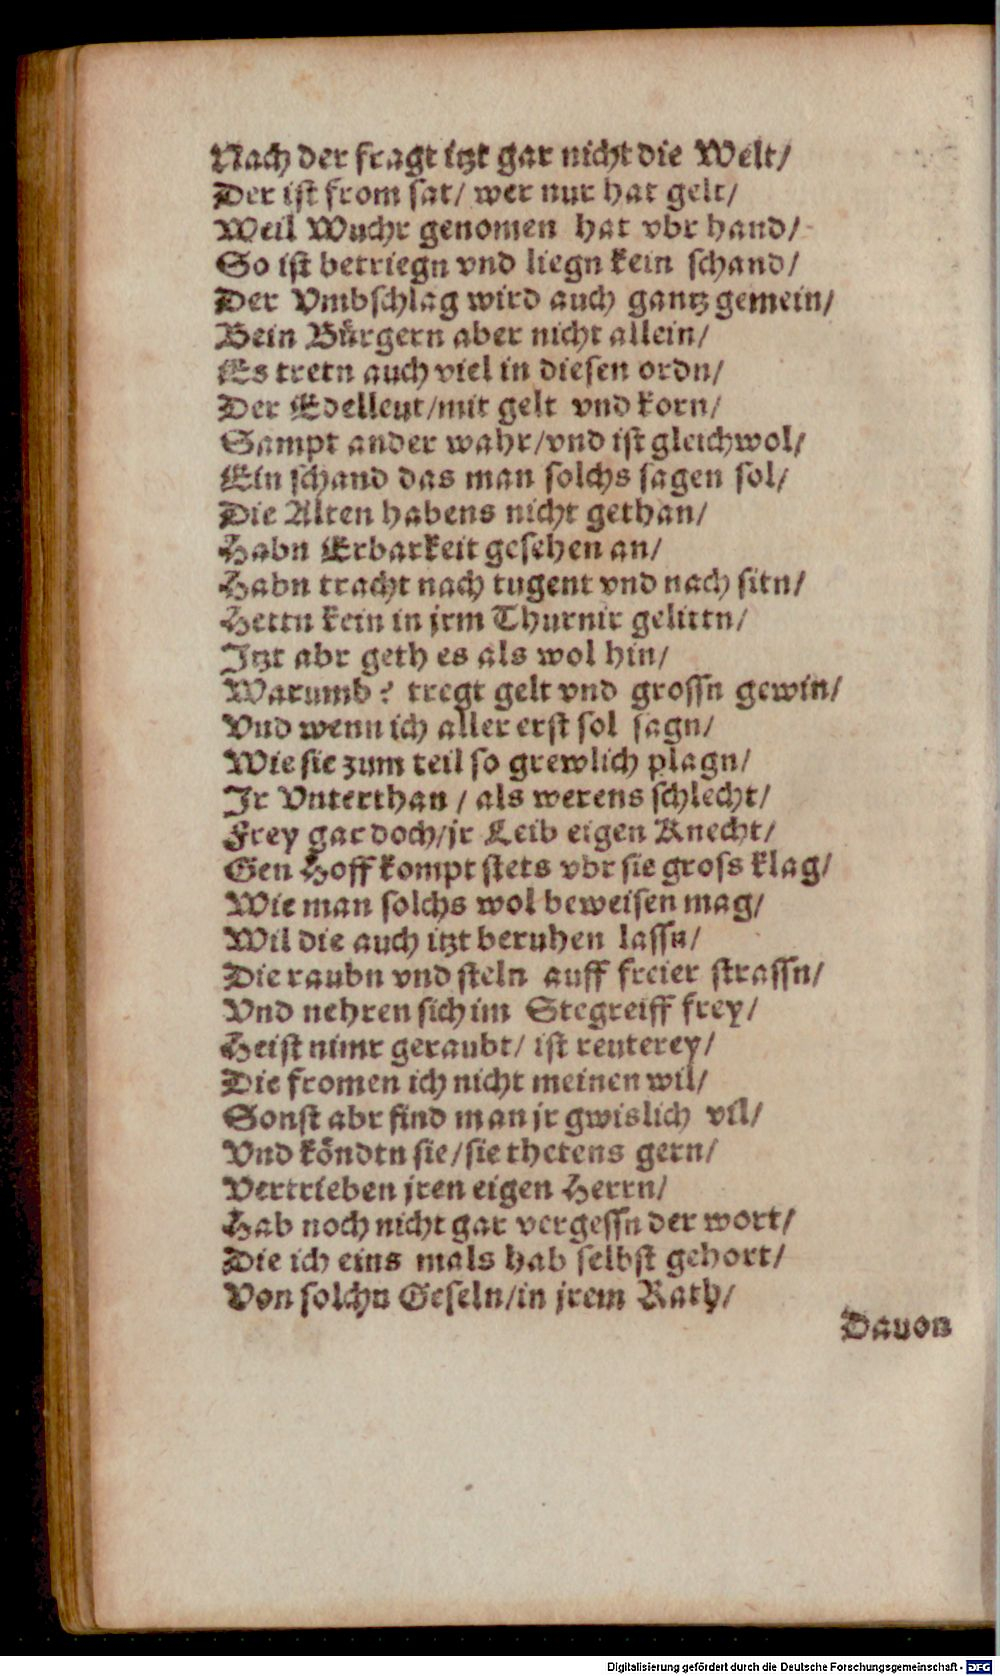 Nach der fragt itzt gar nicht die Welt/
Der ist from sat/ wer nur hat gelt/
Weil Wuchr genomen hat vbr hand/
So ist betriegn vnd liegn kein schand/
Der Vmbschlag wird auch gantz gemein/
Bein Bürgern aber nicht allein/
Es tretn auch viel in diesen ordn/
Der Edelleut/mit gelt vnd korn/
Sampt ander wahr/vnd ist gleichwol/
Ein schand das man solchs sagen sol/
Die Alten habens nicht gethan/
Habn Erbarkeit gesehen an/
Habn tracht nach tugent vnd nach sitn/
Hettn kein in jrm Thurnir gelittn/
Jtzt abr geth es als wol hin/
Warumb? tregt gelt vnd grossn gewin/
Vnd wenn ich aller erst sol sagn/
Wie sie zum teil so grewlich plagn/
Jr Vnterthan / als werens schlecht/
Frey gar doch/jr Leib eigen Knecht/
Gen Hoff kompt stets vbr sie gross klag/
Wie man solchs wol beweisen mag/
Wil die auch itzt beruhen lassn/
Die raubn vnd steln auff freier strassn/
Vnd nehren sich im Stegreiff frey/
Heist nimr geraubt/ ist reuterey/
Die fromen ich nicht meinen wil/
Sonst abr find man jr gwislich vil/
Vnd köndtn sie/sie thetens gern/
Vertrieben jren eigen Herrn/
Hab noch nicht gar vergessn der wort/
Die ich eins mals hab selbst gehort/
Von solchn Geseln/in jrem Rath/
Dauon
Digitalisierung gefördert durch die Deutsche Forschungsgemeinschaft - DFG